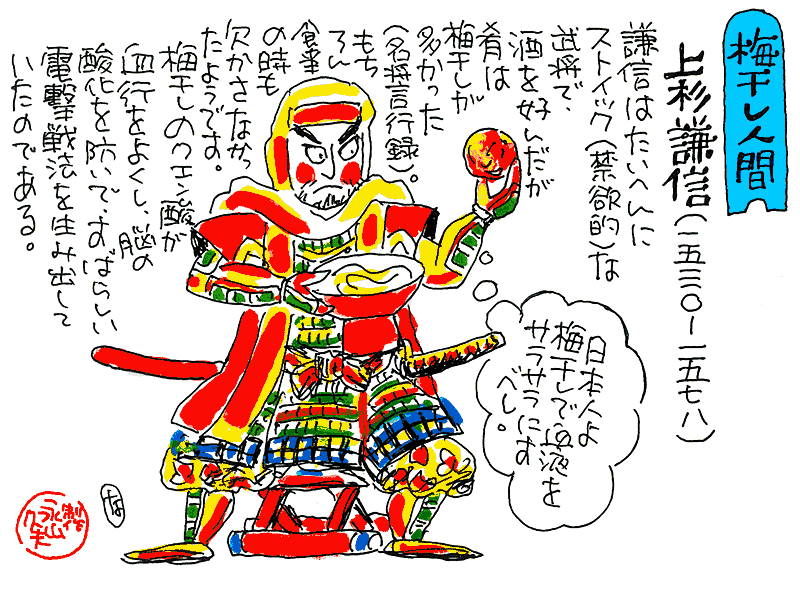 梅干し人間
上杉謙信(一五三〇-一五七八)
謙信はたいへんに
ストイック(禁欲的)な
武将で、
酒を好んだが
肴は
梅干しが
多かった
(名将言行録)。
もち
ろん
食事
の時も
欠かさなかっ
たようです。
梅干しのクエン酸が
血行をよくし、脳の
酸化を防いで、すばらしい
電撃戦法を生み出して
いたのである。
日本人よ
梅干しで血液を
サラサラにす
べし。
な
製作
永山
久夫